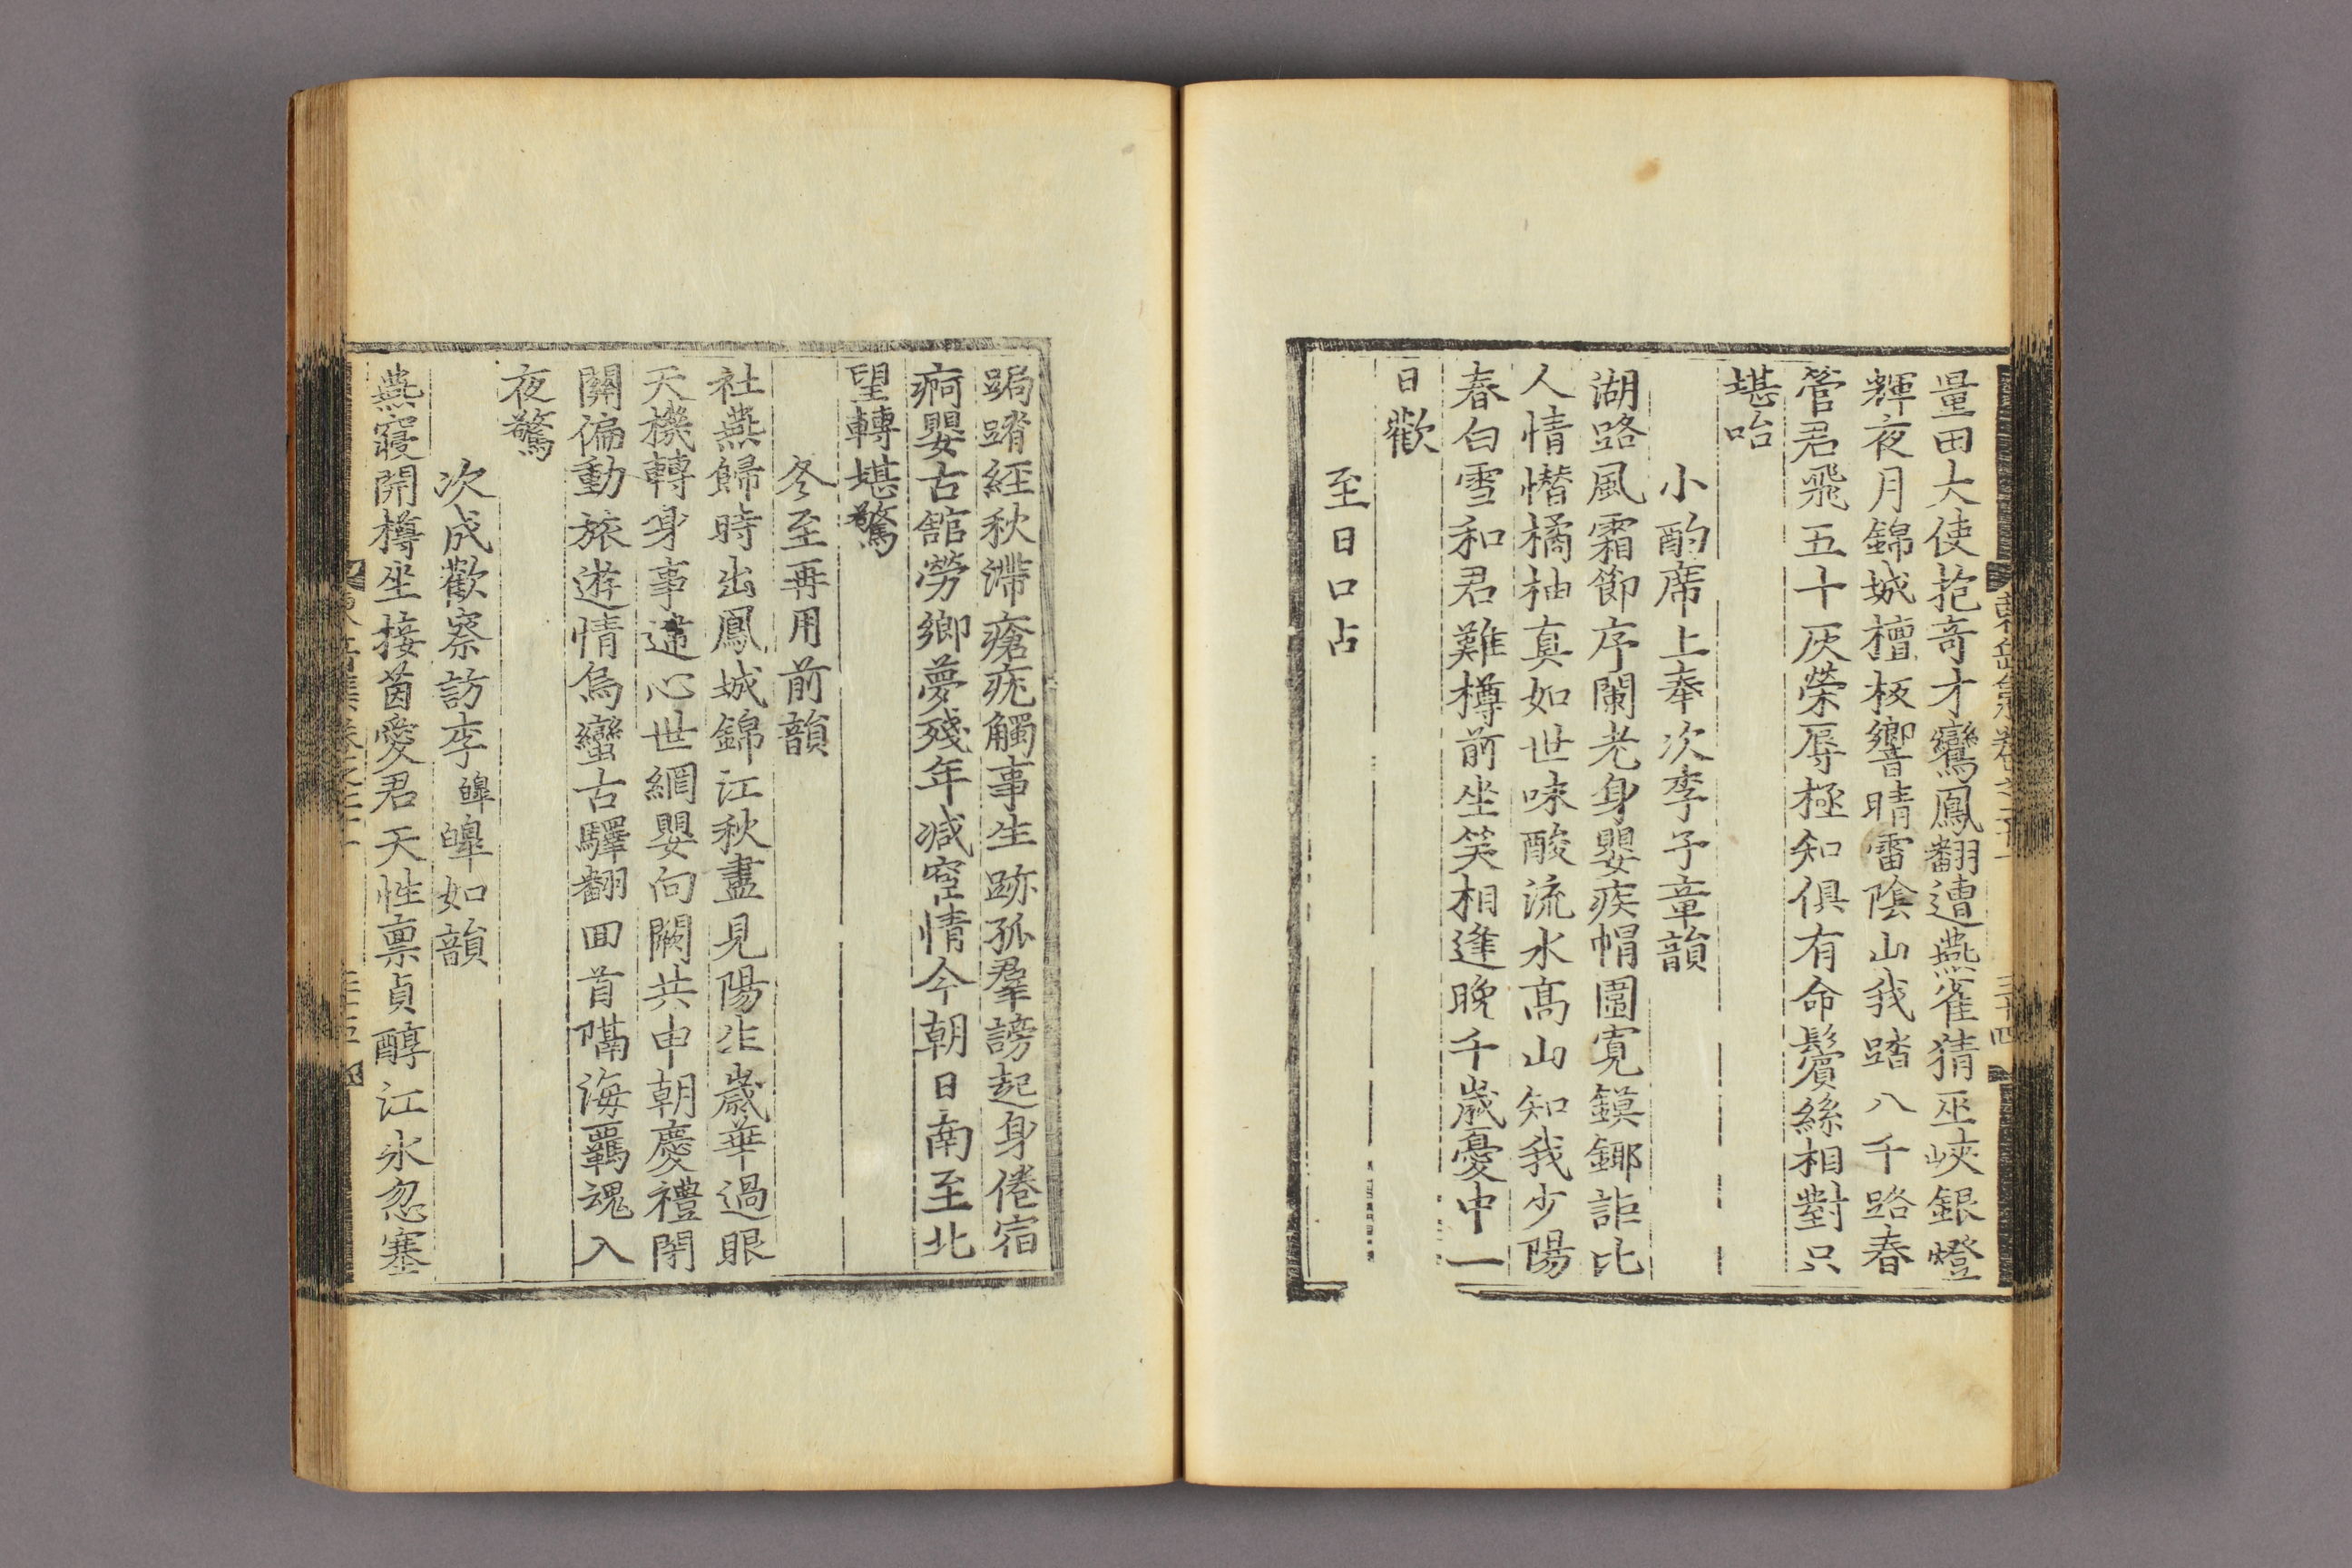 量田大使抱奇才鸞鳳翻遭燕雀猜巫峽銀燈
輝夜月錦城檀板響晴雷陰山我踏八千路春
管君飛五十灰榮辱極知俱有命鬢絲相對只
堪咍
小酌席上奉次李子章韻
湖路風霜節序闌老身嬰疾帽圍寬鏌鋣詎比
人情憯橘柚真如世味酸流水高山知我少陽
春白雪和君難樽前坐笑相逢晚千歲憂中一
日歡
至日口占
跼蹐經秋滯瘡疣觸事生跡孤羣謗起身倦宿
痾嬰古舘勞鄉夢殘年減宦情今朝日南至北
望轉堪驚
冬至再用前韻
社燕歸時出鳳城錦江秋盡見陽生歲華過眼
天機轉身事違心世網嬰向闕共申朝慶禮閉
關偏動旅遊情烏蠻古驛翻回首隔海羈魂入
夜驚
次成歡察訪李皥皥如韻
燕寢開樽坐接茵愛君天性禀貞醇江氷忽塞